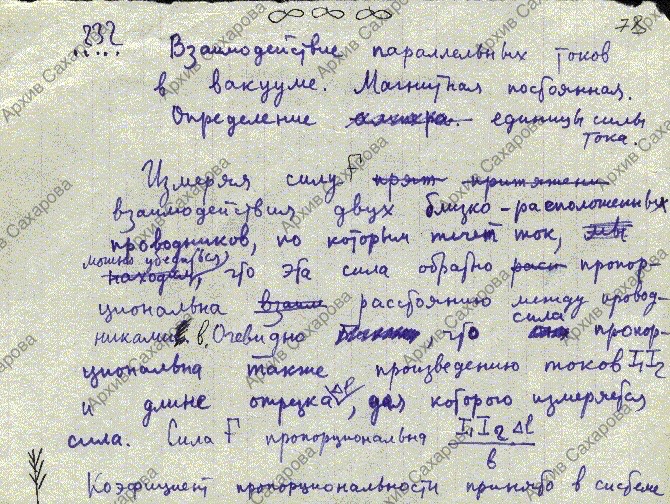 ∞ ∞ ∞ 78
232 Взаимодействие параллельных токов
в вакууме. Магнитная постоянная.
Определение ампера. единицы силы
тока.
Измеряя силу F притяжени
взаимодействия двух близко-расположенных
проводников, по которым течет ток, мы
можно убедиться,
находим, что эта сила обратно расп пропор-
циональна взаим расстоянию между провод-
никами в. Очевидно, что сила пропор-
циональна также произведению токов I₁I₂
и длине отрезка Δl, для которого измеряется
сила. Сила F пропорциональна I₁I₂Δl
в
Коэфициент пропорциональности принято в системе
Архив Сахарова